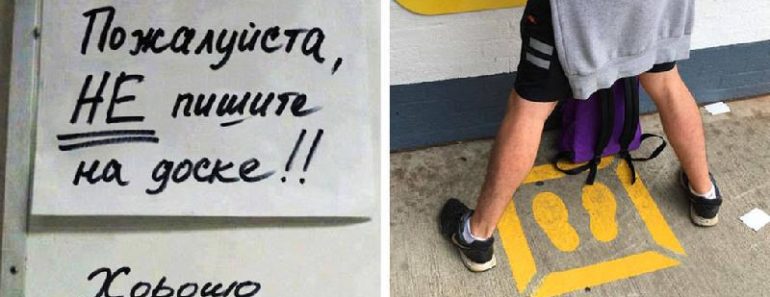 Пожалуйста,
НЕ пишите
на доске!!
Хорошо